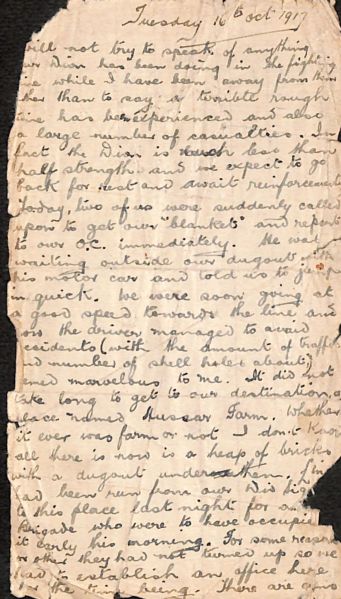 Tuesday 16th Oct 1917
will not try to speak of anything
our Divn has been doing in the fighting
line while I have been away from them
other than to say a terrible rough
time has been experienced and also
a large number of casualties. In
fact the Divn is much less than
half strength and we expect to go
back for rest and await reinforcements
Today, two of us were suddenly called
upon to get our "blanket" and report
to our O.C. immediately. He was
waiting outside our dugout with
his motor car and told us to jump
in quick. We were soon going at
a good speed towards the line and
how the driver managed to avoid
accidents (with the amount of traffic
and number of shell holes about)
seemed marvelous to me. It did not
take long to get to our destination, a
place named Hussar Farm. Whether
it ever was farm or not I don't know
all there is now is a heap of bricks
with a dugout under them. Line
had been run from our Div
to this place last night for our
Brigade who were to have occupied
it early this morning. For some reason
or other they had not turned up so we
had to establish an office here
for the time being. There are